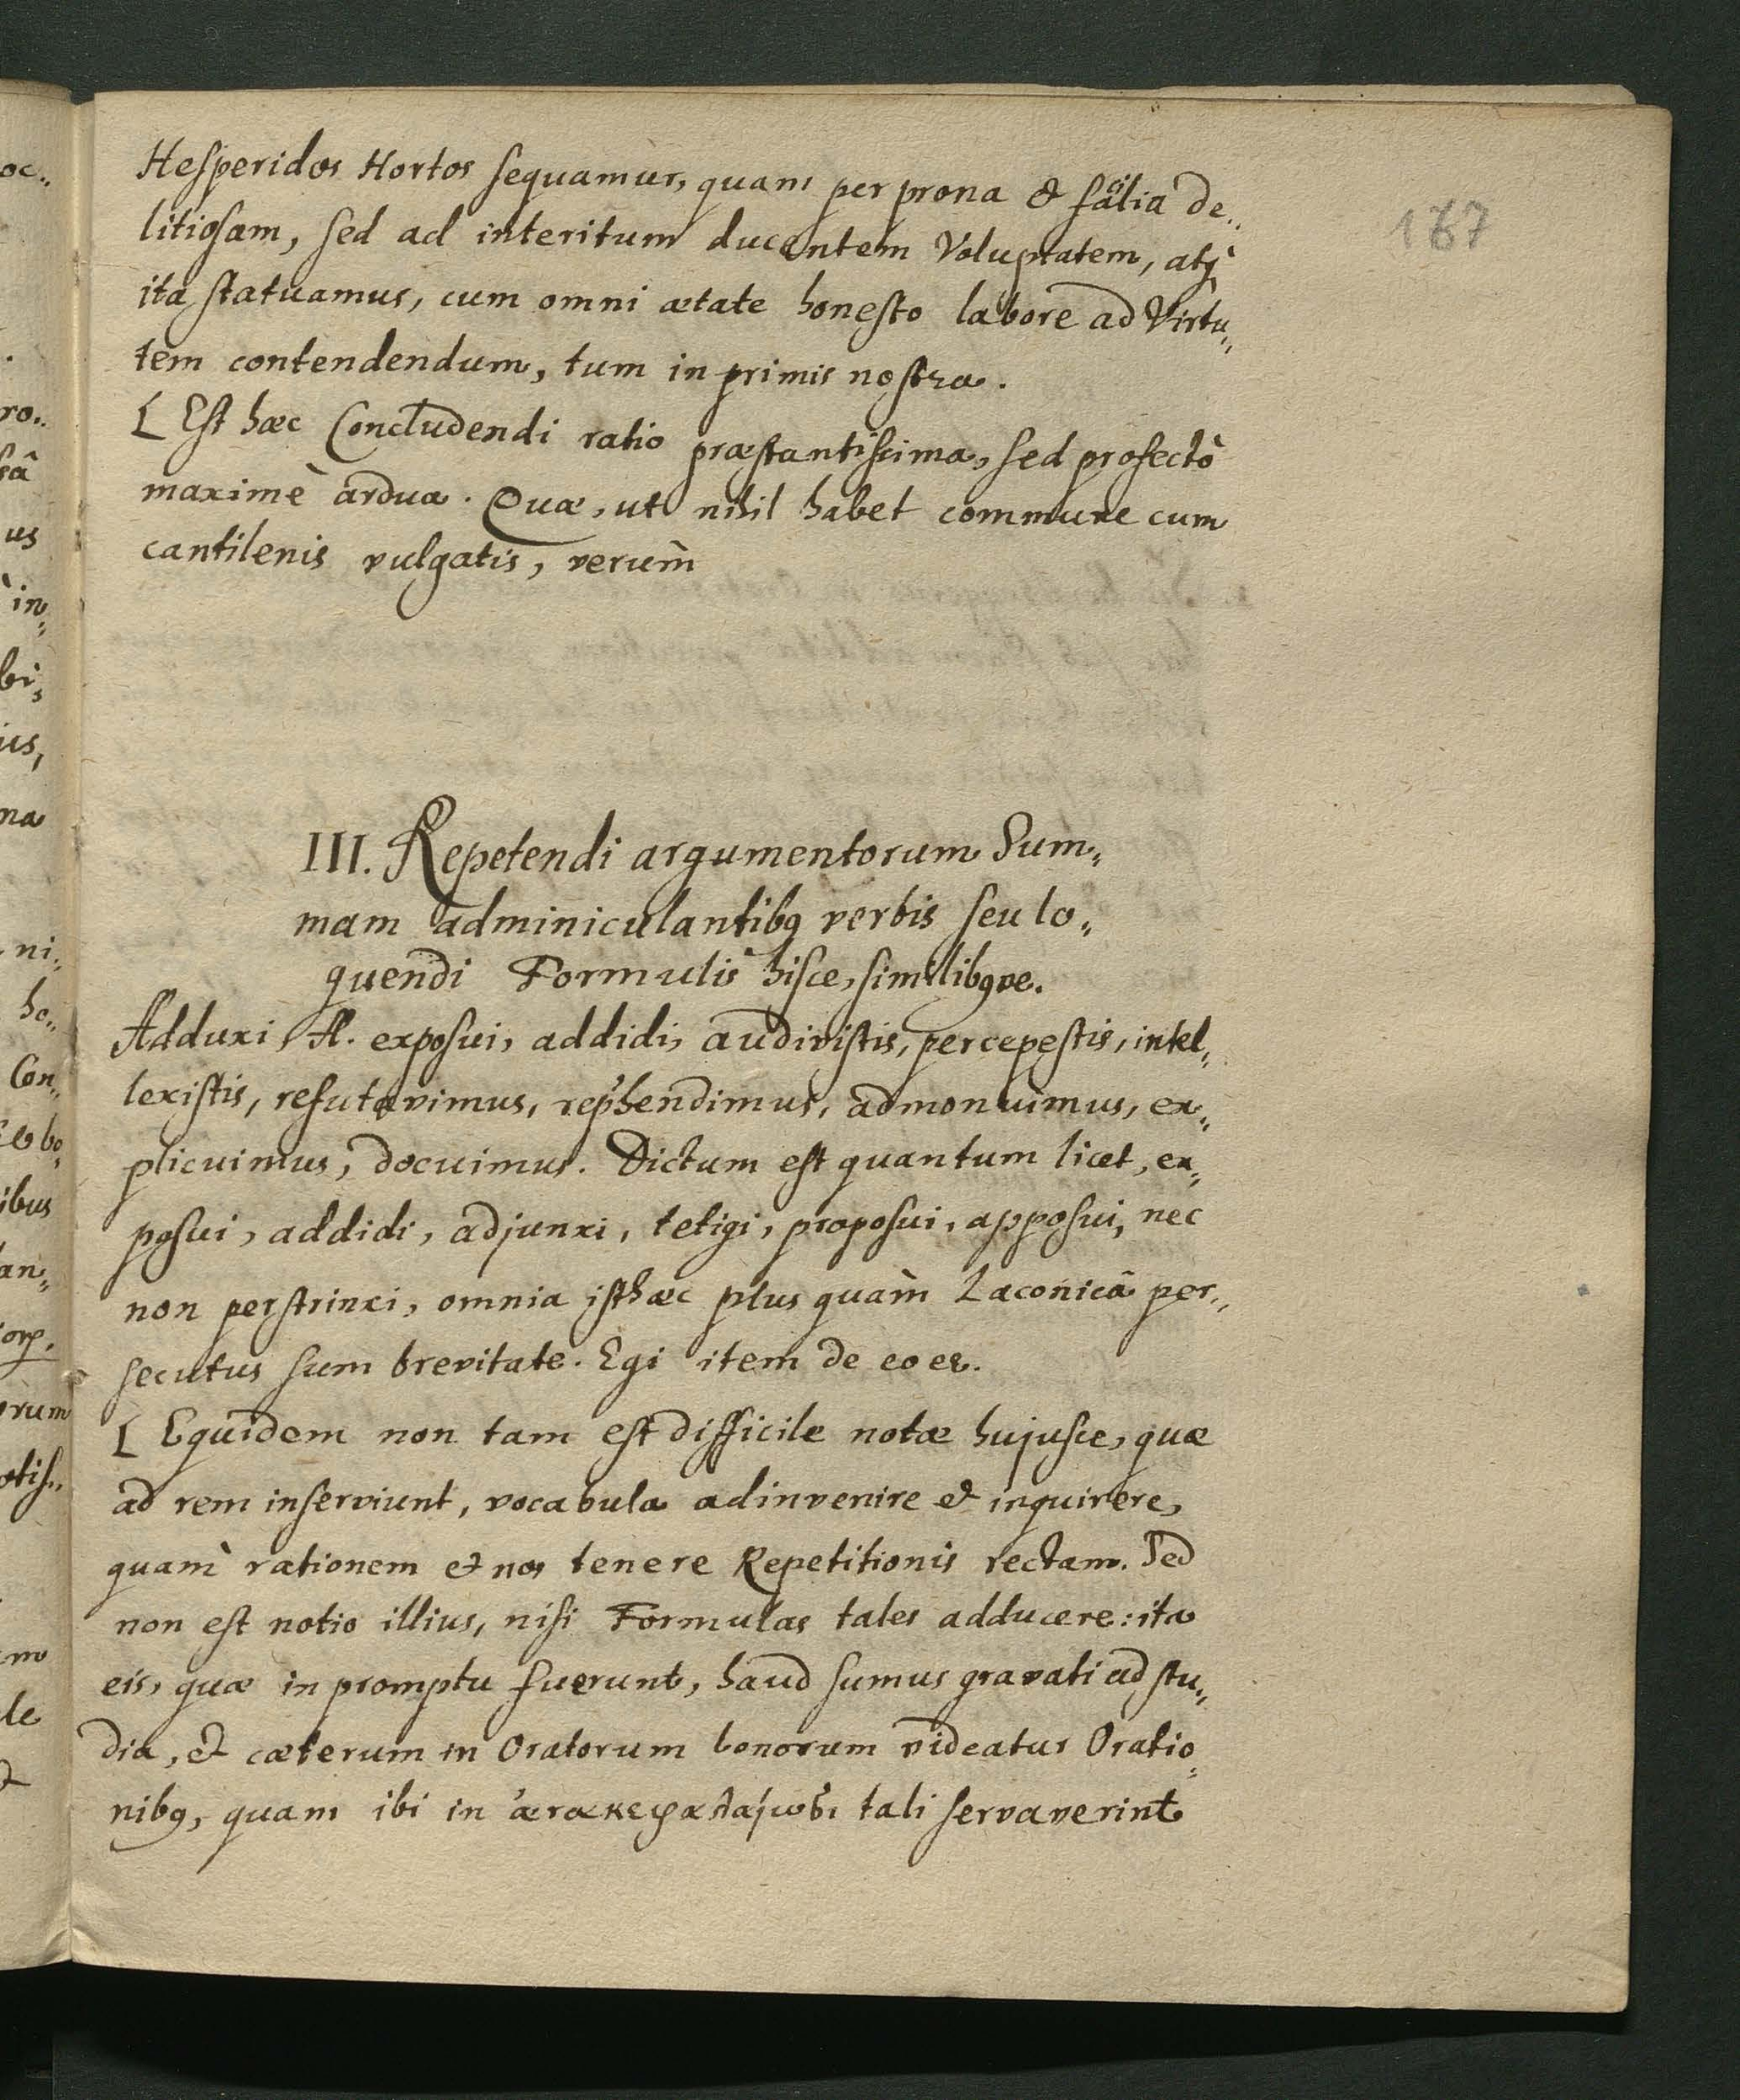 Hesperidos Hortos sequamur, quam per prona & facilia de„
litiosam, sed ad interitum ducentem Voluptatem, atq́
ita statuamus, cum omni ætate honesto labore ad Virtu„
tem contendendum, tum in primis nostra.
[ Est hæc Concludendi ratio præstantissima, sed profectò
maximè ardua. Quæ, ut nihil habet commune cum
cantilenis vulgatis, verùm
III. Repetendi argumentorum Sum„
mam adminiculantibq verbis seu lo„
quendi Formulis hisce, similibqve.
Adduxi, A. exposui, addidi, audivistis, percepestis, intel„
lexistis, refutavimus, rep'hendimus, admonuimus, ex„
plicuimus, docuimus. Dictum est quantum licet, ex„
posui, addidi, adjunxi, tetigi, proposui, apposui, nec
non perstrinxi, omnia isthæc plus quàm Laconicâ per„
secutus sum brevitate. Egi item de eo
[ Equidem non tam est difficile notæ hujusce, quæ
ad rem inserviunt, vocabula adinvenire & inquirere,
quam rationem & nos tenere Repetitionis rectam. Sed
non est notio illius, nisi Formulas tales adducere: ita
eis, quæ in promptu fuerunt, haud sumus gravati ad stu„
dia, & cæterum in Oratorum bonorum videatur Oratio„
nibq, quam ibi in ἀνακεφαλαιώσει tali servaverint
167
oc„
ro„
sâ
us
in„
bi„
us,
na
ni„
ho„
Con„
ibus
an„
rum
otis„
le